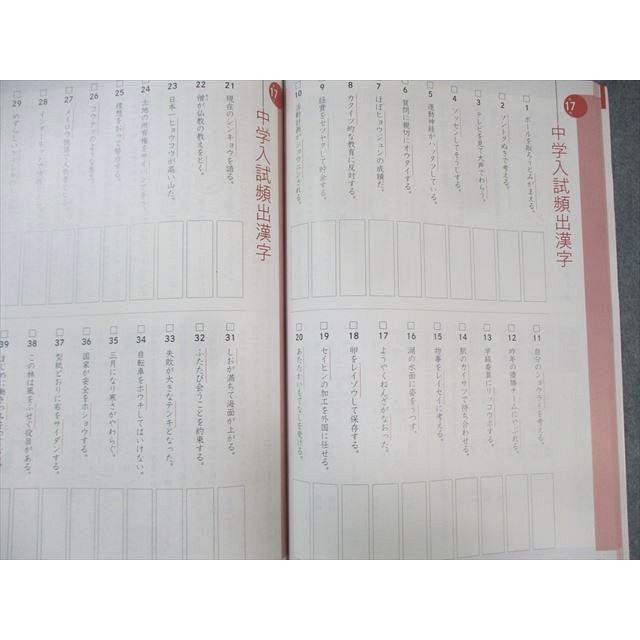 17
中学入試頻出漢字
1 ボールを取ろうと
2 ソントクぬきで考える。
3 テレビを見て大声でわらう。
4 ソッセンしてそうじする。
5 運動神経がハッタツしている。
6 質問に親切にオウタイする。
7 ほぼヒョウジュンの成績だ。
8 カクイツ的な教育に反対する。
9 経費をセツヤクして貯金する。
10
11 自分のショウライを考える。
12 昨年の優勝チームにやぶれる。
13 学級委員にリッコウホする。
14 駅のカイサツで待ち合わせる。
15 物事をレイセイに考える。
16 湖の水面に姿をうつす。
17 ようやくねんざがなおった。
18 卵をレイゾウして保存する。
19 セイヒンの加工を外国に任せる。
20 あたたかいもてなしを受ける。
17
中学入試頻出漢字
21 現在のシンキョウを語る。
22 僧が仏教の教えをとく。
23 日本一ヒョウコウが高い山だ。
24 土地の所有権を
25 理想を
26 コウテツのような
27 メイロウ快活で
28
29
31 しおが満ちて海面が上がる。
32 ふたたび会うことを約束する。
33 失敗が大きなテンキとなった。
34 自転車をホウチしてはいけない。
35 三月になり寒さがやわらぐ。
36 国家が安全をホショウする。
37 型紙どおりに布をサイダンする。
38 この林は風をふせぐ役目がある。
39